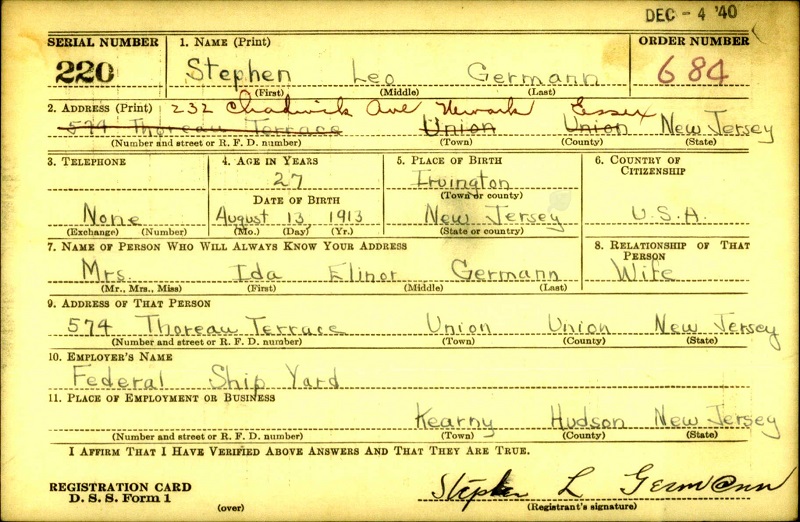 DEC - 4 '40
SERIAL NUMBER 1. NAME (Print) ORDER NUMBER
220 Stephen Leo Germann 684
(First) (Middle) (Last)
2. ADDRESS (Print) 232 Chadwick Ave Newark Essex
574 Thoreau Terrace Union Union New Jersey
(Number and street or R. F. D. number) (Town) (County) (State)
3. TELEPHONE 4. AGE IN YEARS 5. PLACE OF BIRTH 6. COUNTRY OF CITIZENSHIP
27 Irvington
DATE OF BIRTH (Town or county)
None August 13, 1913 New Jersey U.S.A.
(Exchange) (Number) (Mo.) (Day) (Yr.) (State or country)
7. NAME OF PERSON WHO WILL ALWAYS KNOW YOUR ADDRESS 8. RELATIONSHIP OF THAT PERSON
Mrs. Ida Elinor Germann Wife
(Mr., Mrs., Miss) (First) (Middle) (Last)
9. ADDRESS OF THAT PERSON
574 Thoreau Terrace Union Union New Jersey
(Number and street or R. F. D. number) (Town) (County) (State)
10. EMPLOYER'S NAME
Federal Ship Yard
11. PLACE OF EMPLOYMENT OR BUSINESS
Kearny Hudson New Jersey
(Number and street or R. F. D. number) (Town) (County) (State)
I AFFIRM THAT I HAVE VERIFIED ABOVE ANSWERS AND THAT THEY ARE TRUE.
REGISTRATION CARD Stephen L Germann
D. S. S. Form 1 (over) (Registrant's signature)